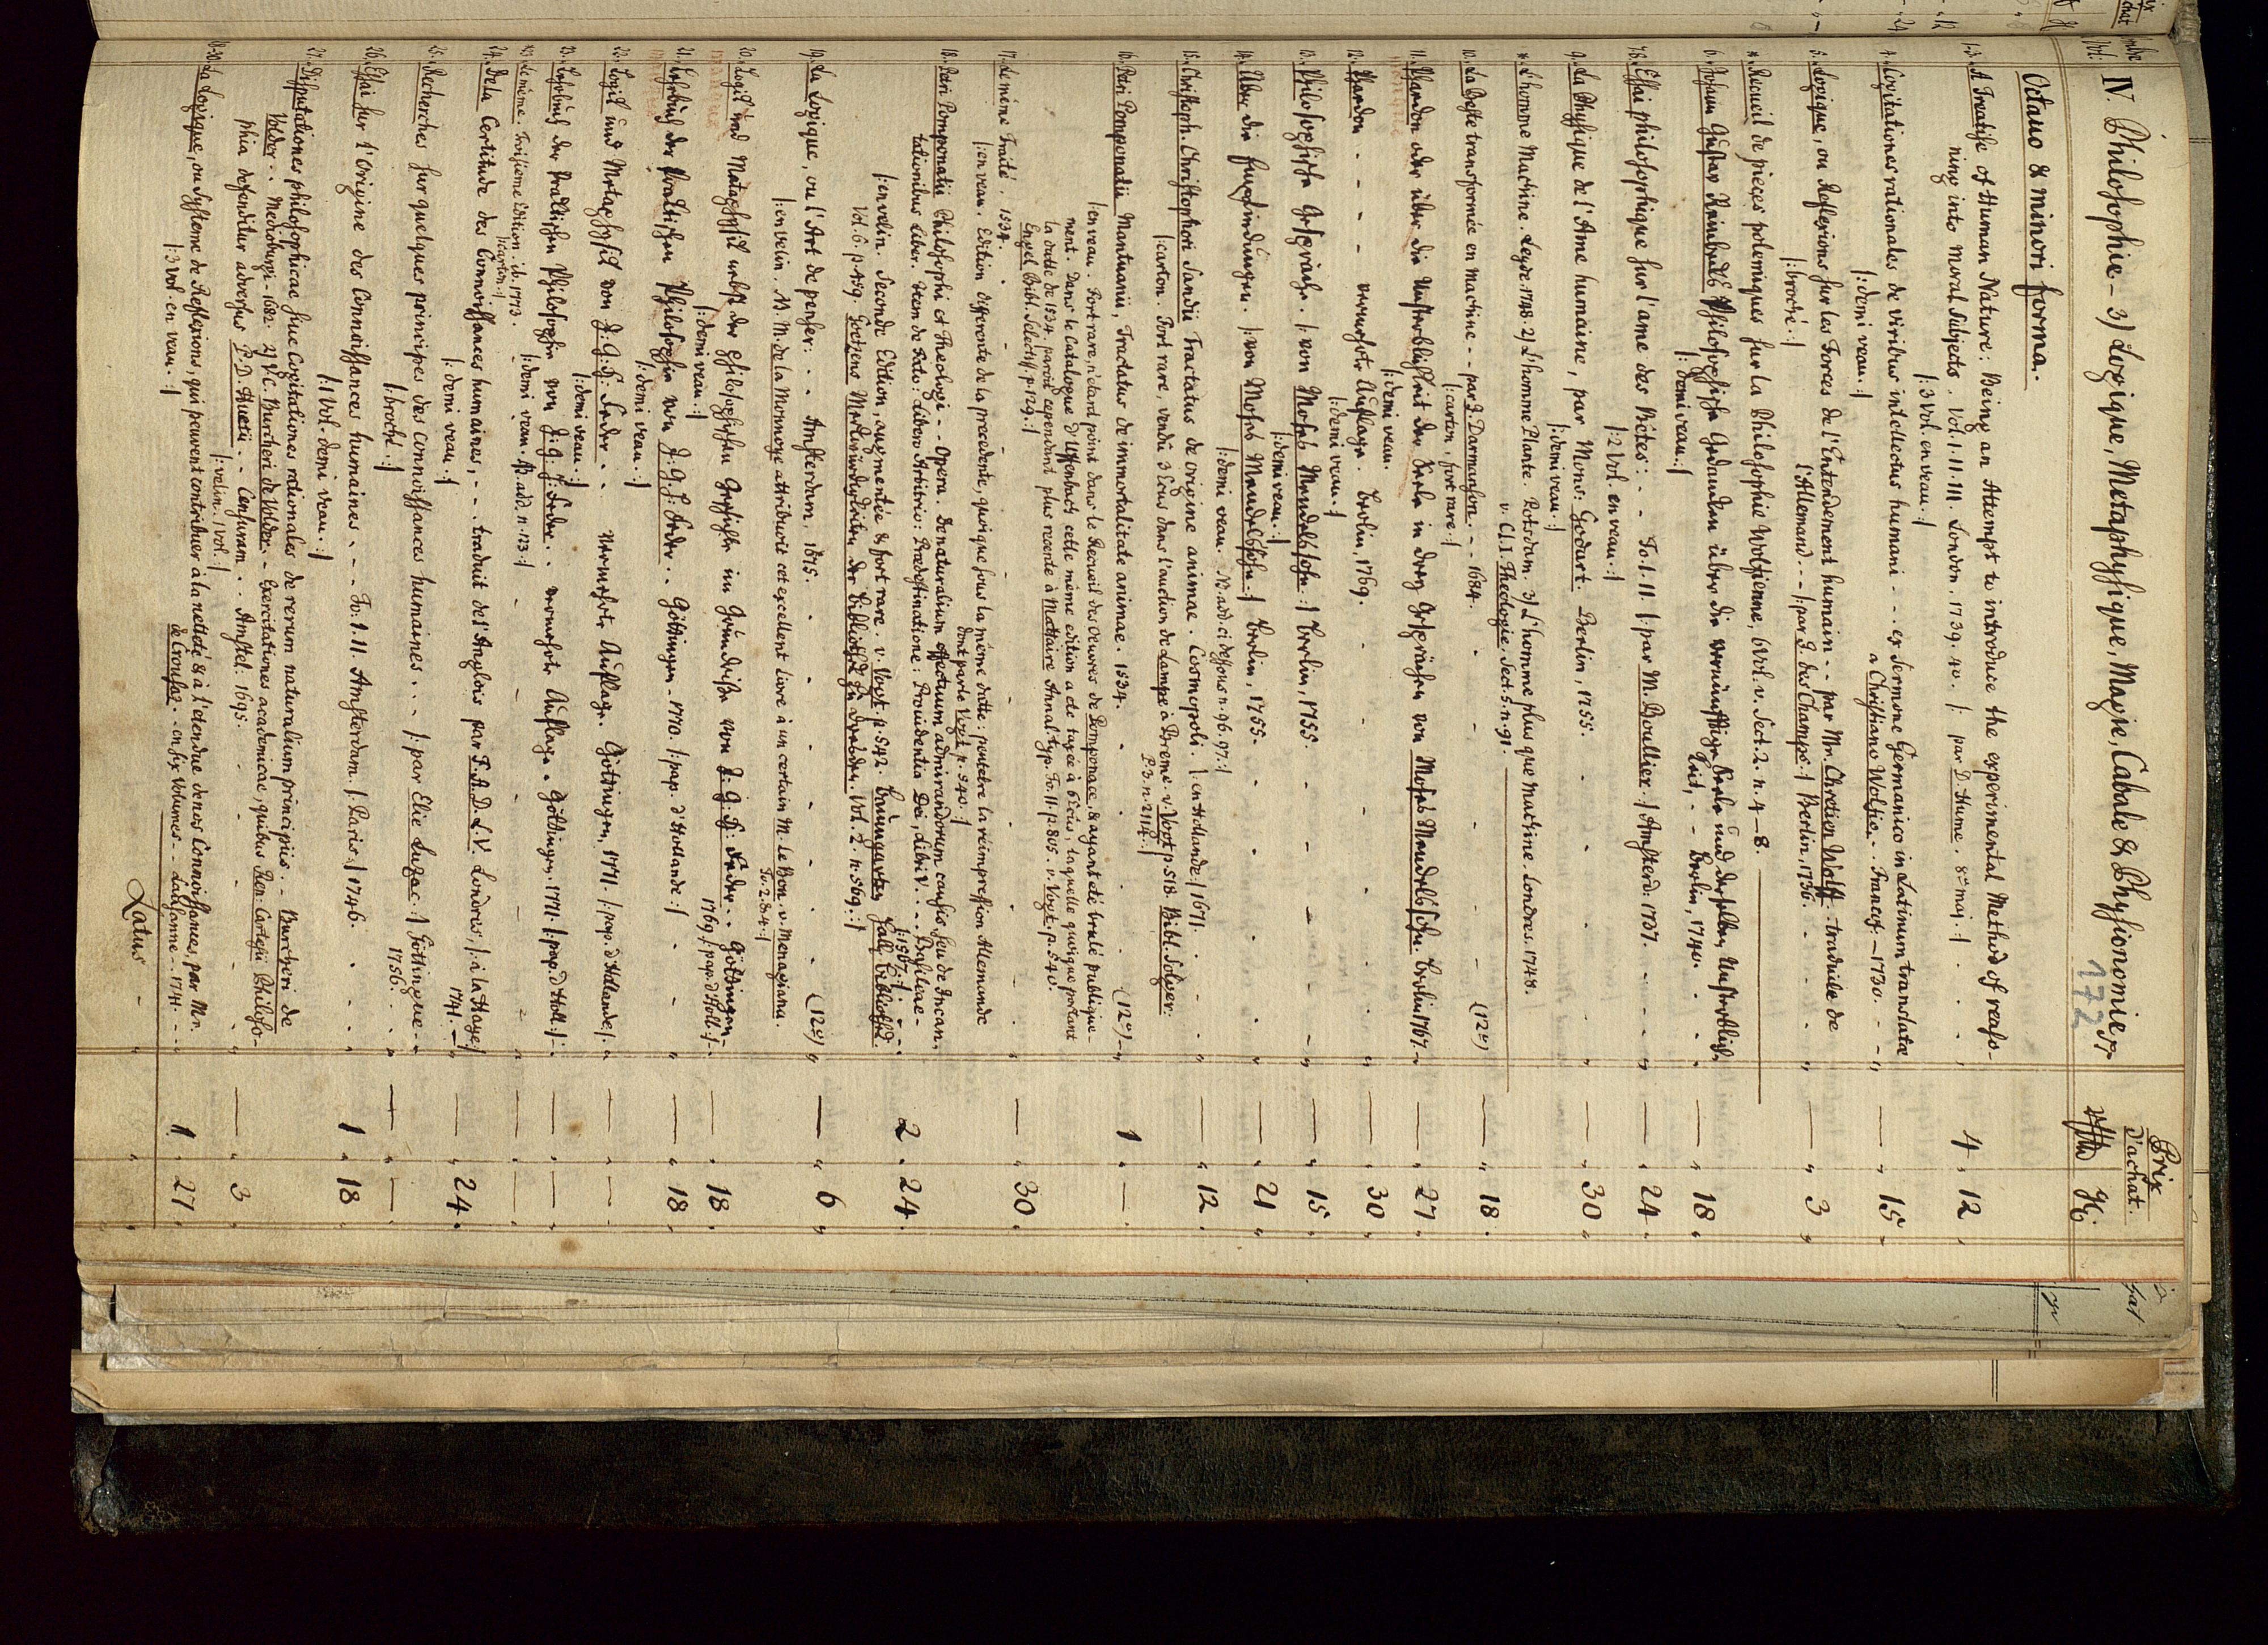 IV. Philosophie - 3) Logique, Metaphysique, Magie, Cabale & Physionomie, p.
172
Prix d'achat.
Octavo & minori forma.
1-3. A Treatise of Human Nature: Being an Attempt to introduce the experimental Method of reaso-
ning into moral Subjects. Vol. I. II. III. London. 1739. 40. /: par D. Hume. 8° maj. :/ 4 12
/: 3 vol. en veau. :/
4. Cogitationes rationales de viribus intellectus humani - - ex sermone Germanico in Latinum translatæ
a Christiano Wolfio - - Francof. - 1730. - - 15
/: demi veau. :/
5. Logique, ou Reflexions sur les Forces de l'Entendement humain - - par Mr. Chrétien Wolff - traduite de
l'Allemand - - - /: par J. des Champs :/ Berlin, 1736. - - 3
/: broché. :/
*. Recueil de pieces polemiques sur la Philosophie Wolfienne, 6 Vol. v. Sect. 2. n. 4-8.
6. Johann Gustav Reinbecks Philosophische Gedanken über die vernünftige Seele und derselben Unsterblich-
keit, - - Berlin, 1740. - - 18
/: demi veau. :/
7.8. Essai philosophique sur l'ame des Bêtes: - - To. I. II. /: par M. Boullier. :/ Amsterd: 1737. - - 24
/: 2 Vol. en veau. :/
9. La Physique de l'Ame humaine, par Mons: Godart. Berlin, 1755. - - 30
/: demi veau. :/
*. L'homme Machine. Leyde. 1748. 2) L'homme Plante. Potsdam. 3) L'homme plus que Machine. Londres. 1748.
v. Cl. I. Theologie, Sect. 5. n. 91.
10. La Beste transformée en Machine - - par J. Darmanson - - 1684. - - (12°) 18
/: carton, fort rare :/
11. Phædon oder über die Unsterblichkeit der Seele in drey Gesprächen von Moses Mendelssohn. Berlin 1767. - 27
/: demi veau.
12. Phædon - - - vermehrte Auflage. Berlin, 1769. - - 30
/: demi veau. :/
13. Philosophische Gespräche. /: von Moses Mendelssohn :/ Berlin, 1755. - - 15
/: demi veau. :/
14. Über die Empfindungen. /: von Moses Mendelssohn :/ Berlin, 1755. - - 21
/: demi veau. N. add. ci dessous n. 96. 97. :/
15. Christoph. Christophori Sandii Tractatus de origine animae. Cosmopoli. /: en Hollande :/ 1671. - - 12
/: carton. Fort rare, vendû 3 Ecus dans l'auction de Lampe à Breme. v. Vogt p. 518. Bibl. Solger.
P. 3. n. 2114. :/
16. Petri Pomponatii Mantuanii, Tractatus de immortalitate animae. 1534. - - (12°) - 1 —
/: en veau. Fort rare, n'étant point dans le Recueil des Oeuvres de Pomponace & ayant été brulé publique-
ment. Dans le Catalogue d'Uffenbach cette même edition a été taxée à 6 Ecus, laquelle quoique portant
la datte de 1534. paroit cependant plus recente à Mattaire Annal. typ. To. II. p. 805. v. Vogt. p. 540.
Engel Bibl. Selectiss. p. 129. :/
17. Le même Traité. 1534. - - 30
/: en veau. Edition differente de la precedente, quoique sous la même datte. peutetre la réimpression Allemande
dont parle Vogt p. 540. :/
18. Petri Pomponatii Philosophi et Theologi - - Opera. De naturalium effectuum admirandorum causis, seu de Incan-
tationibus Liber. Item de Fato: Libero Arbitrio: Prædestinatione: Providentia Dei, Libri V - - - Basileae -
/: 1567. :/ - - 2 24
/: en velin. Seconde Edition, augmentée & fort rare. v. Vogt. p. 542. Baumgarten Hall. Bibliothek.
Vol. 6. p. 459. Goetzens Merkwürdigkeiten der Bibliothek zu Dresden. Vol. 2. n. 569. :/
19. La Logique, ou l'Art de penser: - - Amsterdam, 1675. - - (12°) 6
/: en velin. N. M. de la Monnoye attribuoit cet excellent livre à un certain M. Le Bon. v. Menagiana.
To. 2. 3. 4. :/
20. Logik und Metaphysik nebst der philosophischen Geschichte im Grundrisse von J. G. H. Feder - - Göttingen -
1769 /: pap. d'Holl: :/ - 18
/: demi veau. :/
21. Lehrbuch der praktischen Philosophie von J. G. H. Feder - - Göttingen - 1770. /: pap. d'Hollande :/ - - 18
/: demi veau. :/
22. Logik und Metaphysik von J. G. H. Feder - - vermehrte Auflage. Göttingen, 1771. /: pap. d'Hollande :/ - —
/: demi veau. :/
23. Lehrbuch der praktischen Philosophie von J. G. H. Feder - - vermehrte Auflage. Göttingen. 1771. /: pap. d'Holl: :/ - —
/: demi veau. N. add. n. 123. :/
*23. Le même. Troisieme Edition. ib. 1773. - - —
/: carton :/
24. De la Certitude des Connoissances humaines, - - - traduit de l'Anglois par F. A. D. L. V. Londres, /: à la Haye :/
1741. - 24
/: demi veau. :/
25. Recherches sur quelques principes des connoissances humaines - - - /: par Elie Luzac :/ Göttingue -
1756. - - —
/: broché. :/
26. Essai sur l'Origine des Connoissances humaines - - - To. I. II. Amsterdam. /: Paris. :/ 1746. - - 1 18
/: 1 Vol. demi veau. :/
27. Disputationes philosophicae sive Cogitationes rationales de rerum naturalium principiis - - Burcheri de
Volder - - Medioburgi - 1682. 2) VC. Burcheri de Volder - - Exercitationes academicae, quibus Ren: Cartesii Philoso-
phia defenditur adversus P. D. Huetii - - Censuram - - Amstel: 1695. - - 3
/: velin. 1 Vol. :/
28-30. La Logique, ou Systeme de Reflexions, qui peuvent contribuer à la netteté & à l'etendue de nos Connoissances, par Mr.
de Crousaz - - en six Volumes - - Lausanne - - 1741. - - 1 27
/: 3 Vol. en veau. :/
Latus -